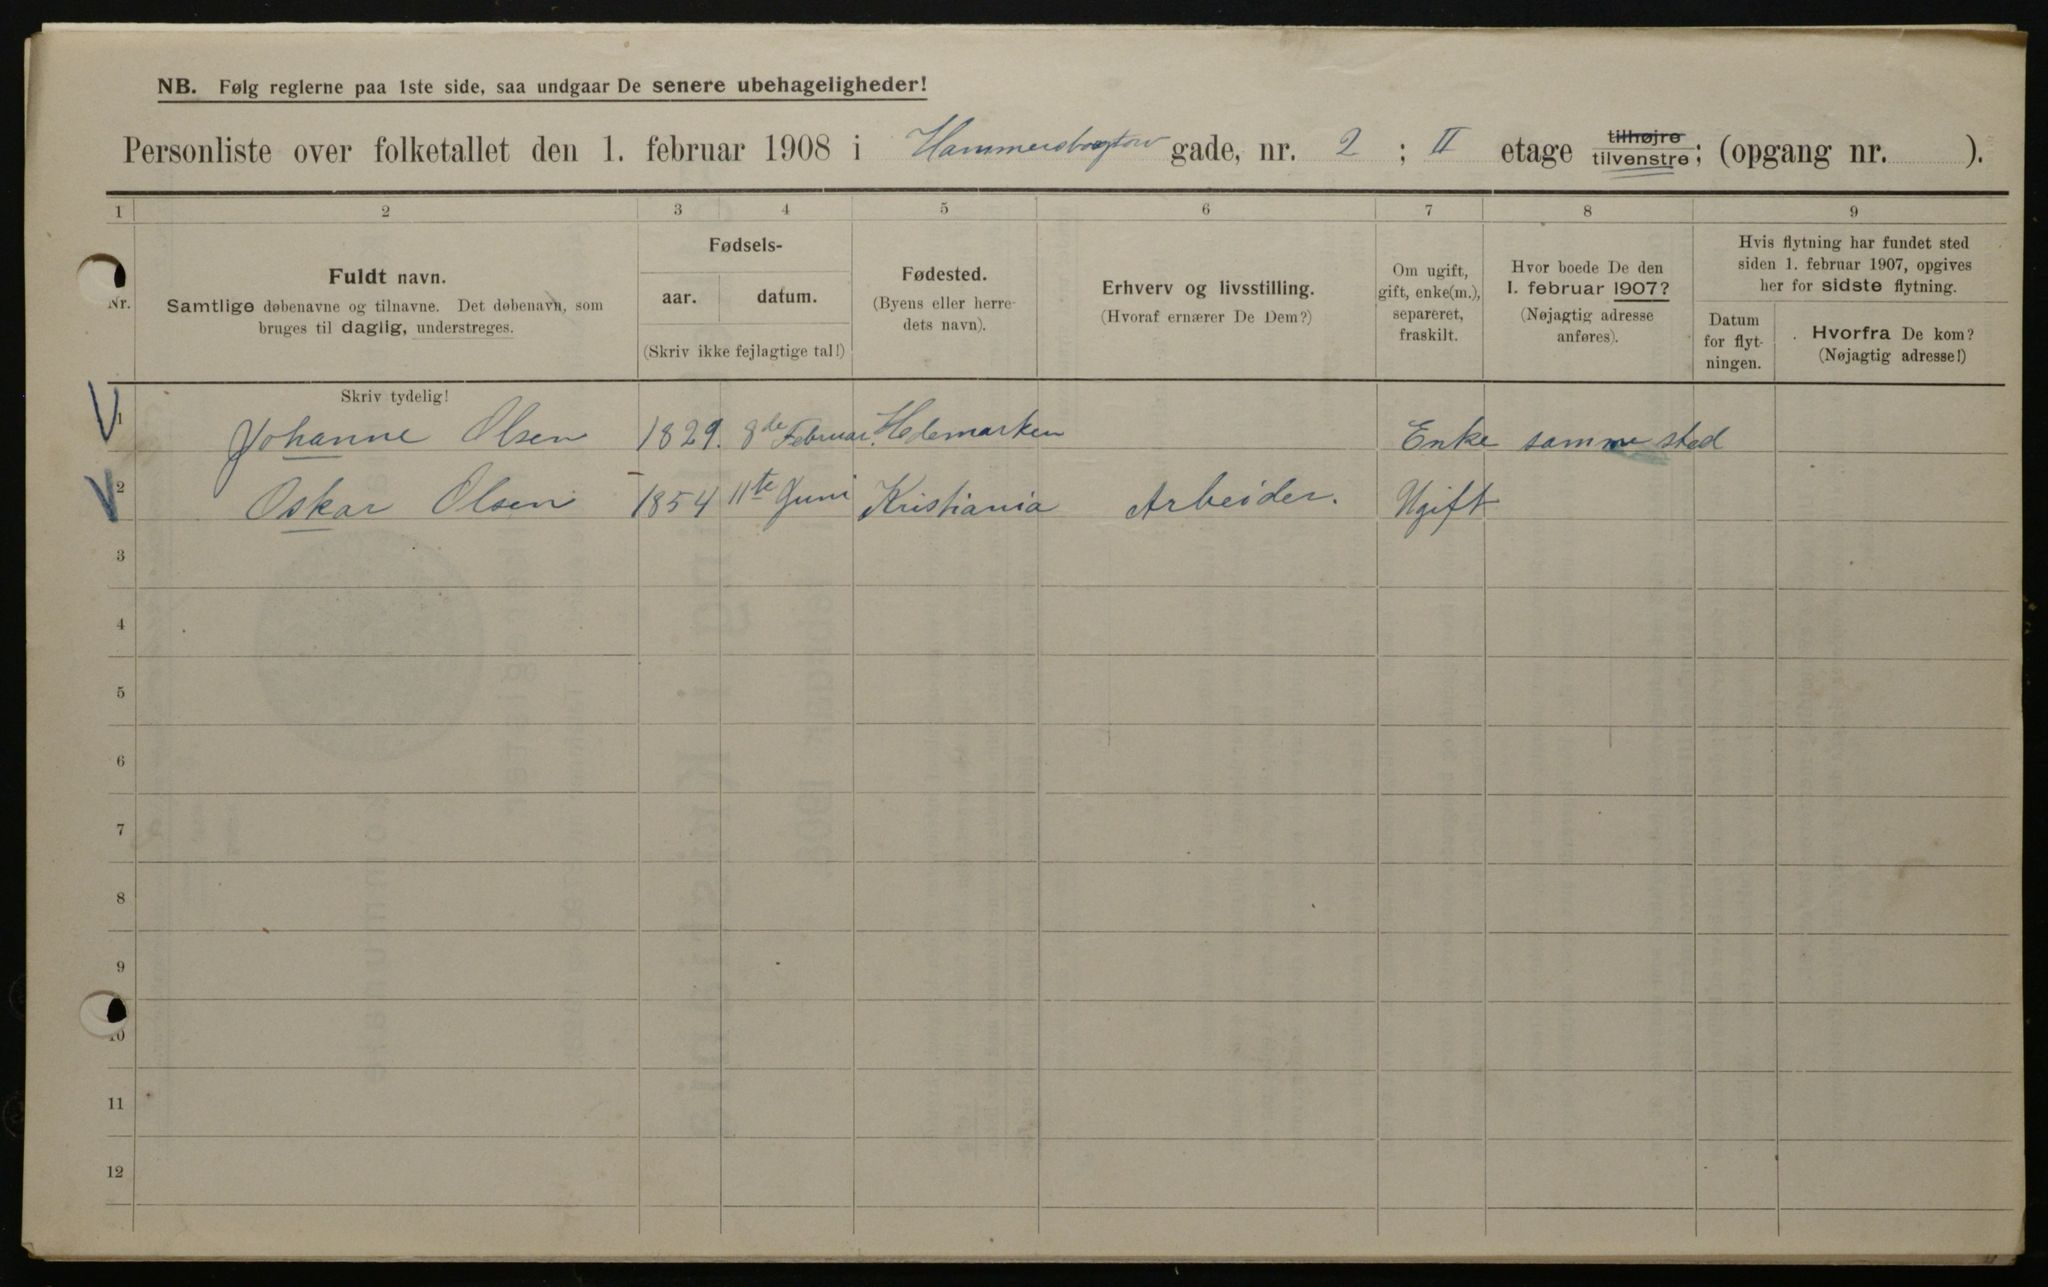 NB. Følg reglerne paa 1ste side, saa undgaar De senere ubehageligheder!
Personliste over folketallet den 1. februar 1908 i Hammersborgtorv gade, nr. 2 ; II etage tilhøjre tilvenstre; (opgang nr. ).
1 2 3 4 5 6 7 8 9
Nr.
Fuldt navn.
Samtlige døbenavne og tilnavne. Det døbenavn, som
bruges til daglig, understreges.
Fødsels-
aar. datum.
(Skriv ikke fejlagtige tal!)
Fødested.
(Byens eller herre-
dets navn).
Erhverv og livsstilling.
(Hvoraf ernærer De Dem?)
Om ugift,
gift, enke(m.),
separeret,
fraskilt.
Hvor boede De den
1. februar 1907?
(Nøjagtig adresse
anføres).
Hvis flytning har fundet sted
siden 1. februar 1907, opgives
her for sidste flytning.
Datum
for flyt-
ningen.
Hvorfra De kom?
(Nøjagtig adresse!)
Skriv tydelig!
1 Johanne Olsen 1829. 8de Februar. Hedemarken Enke samme sted
2 Oskar Olsen 1854 11te Juni Kristiania Arbeider. Ugift
3
4
5
6
7
8
9
10
11
12